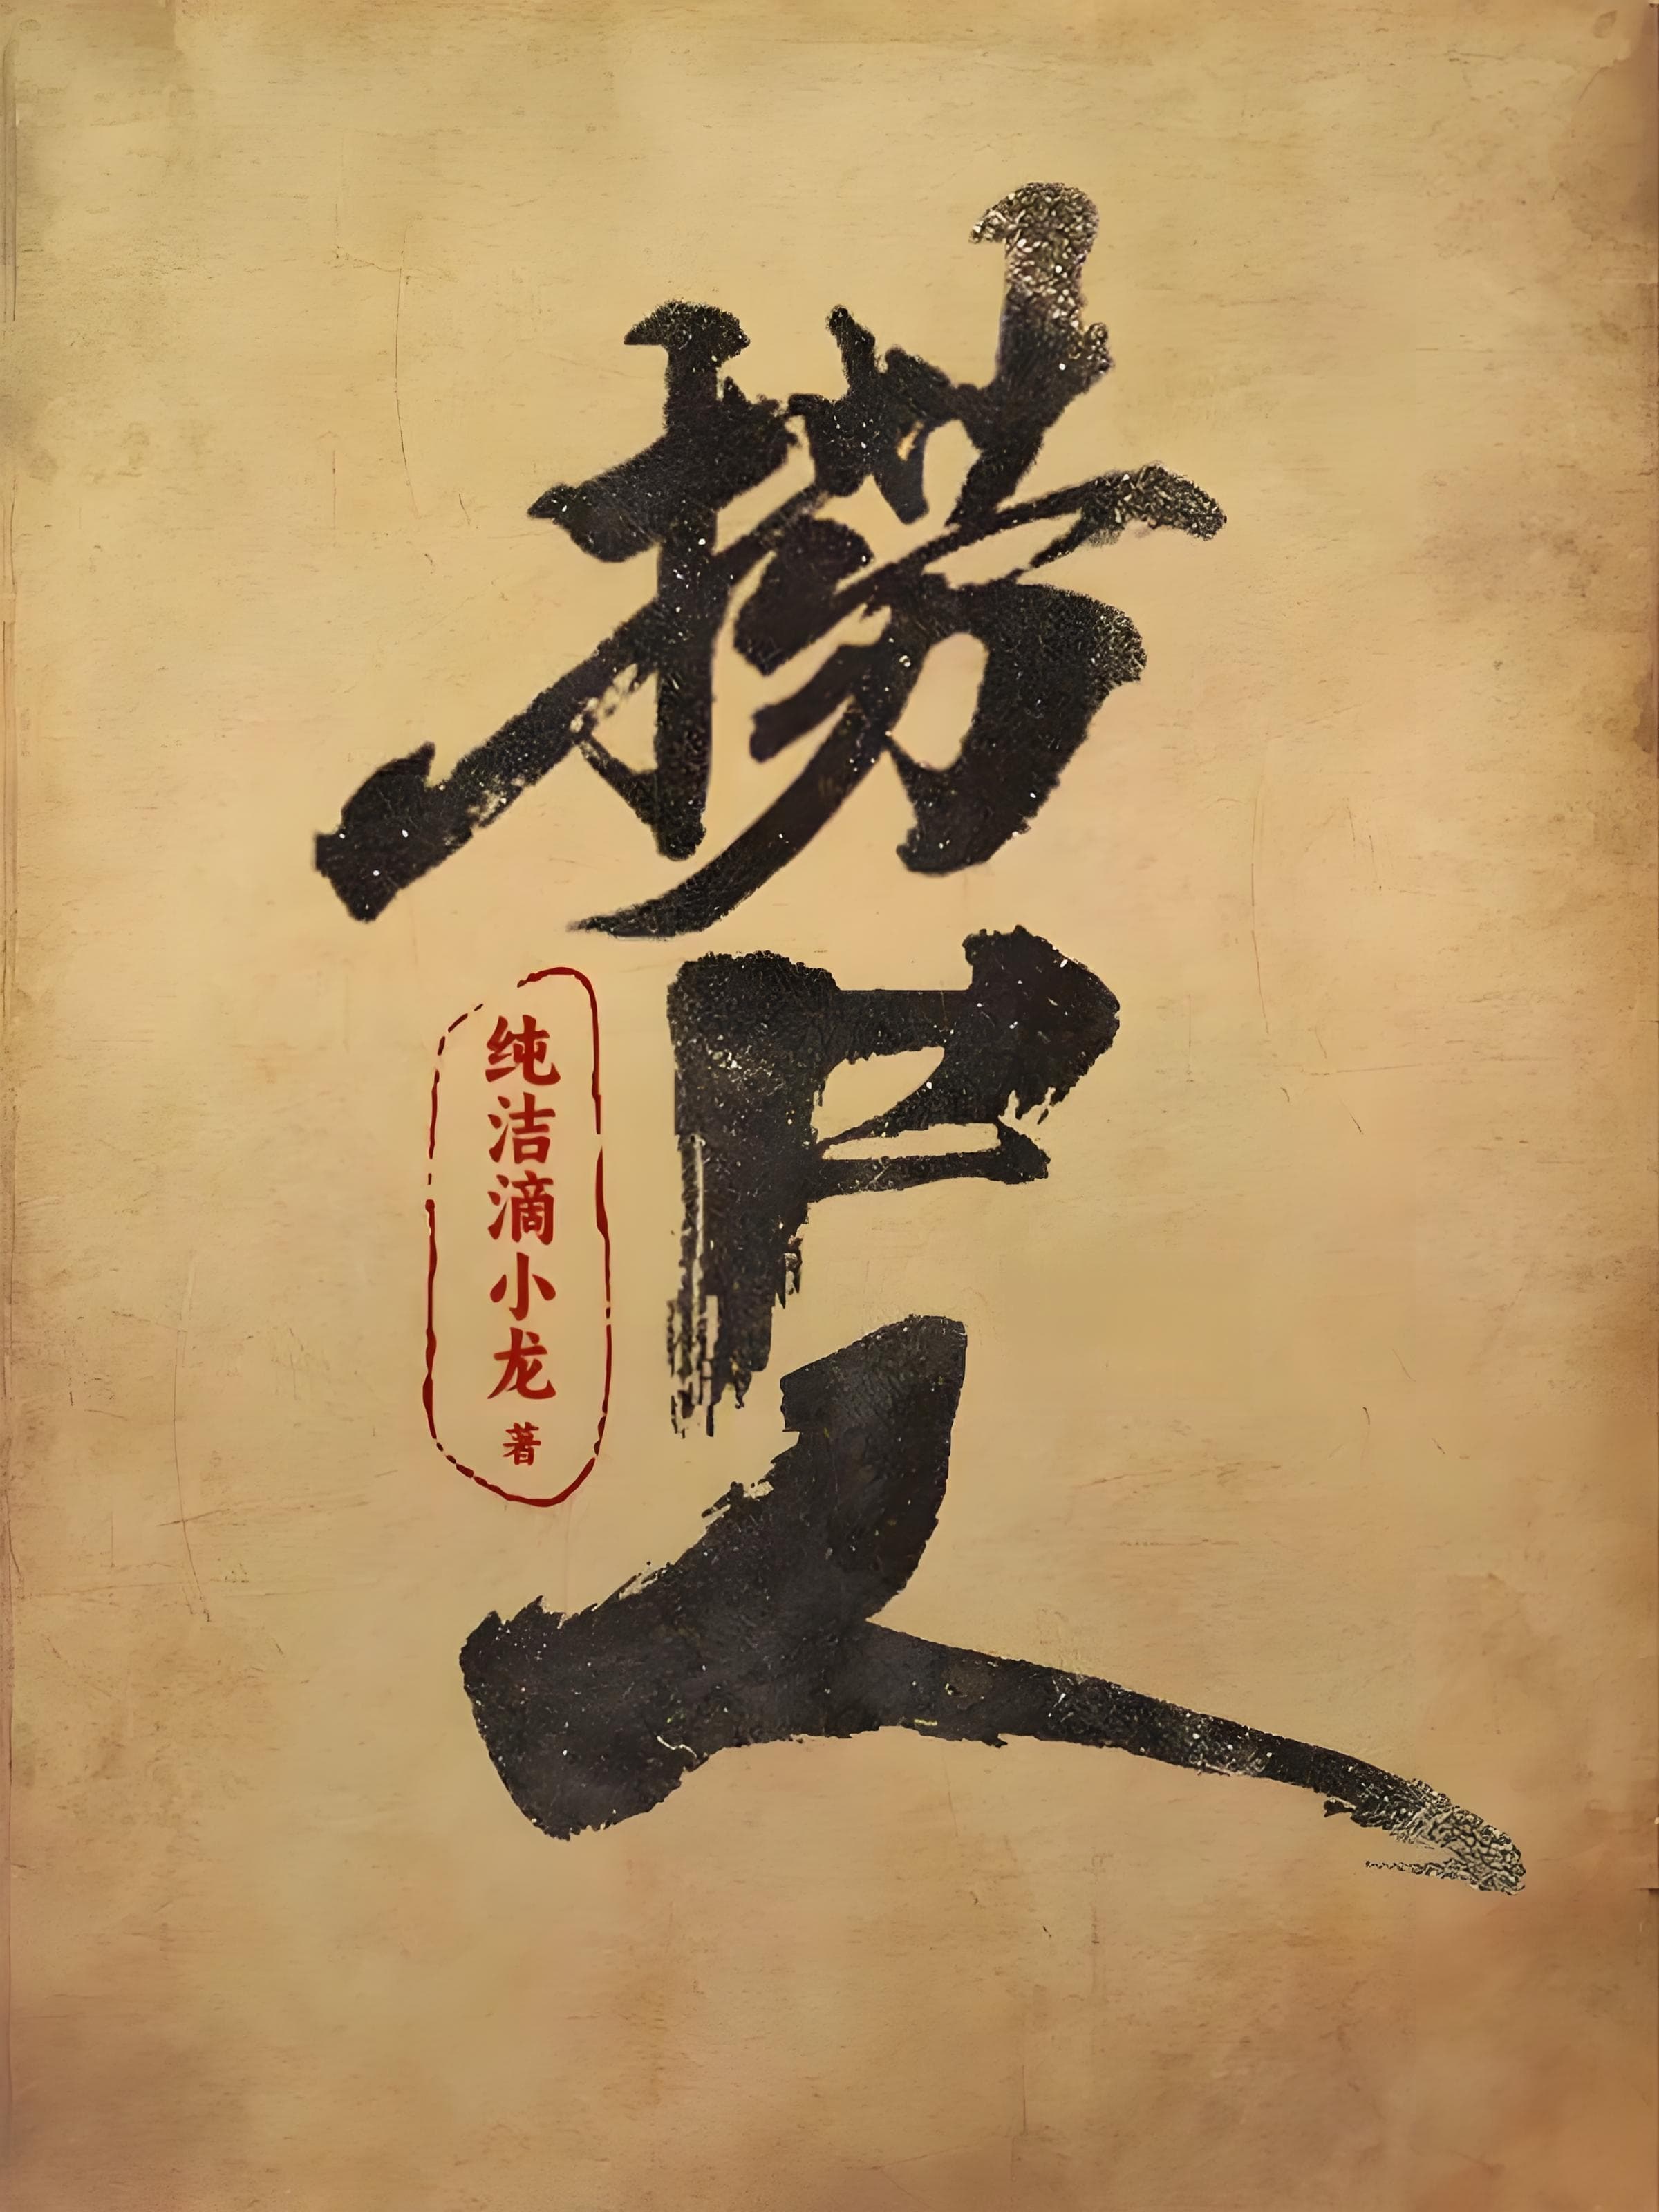 捞尸人
纯洁滴小龙 著